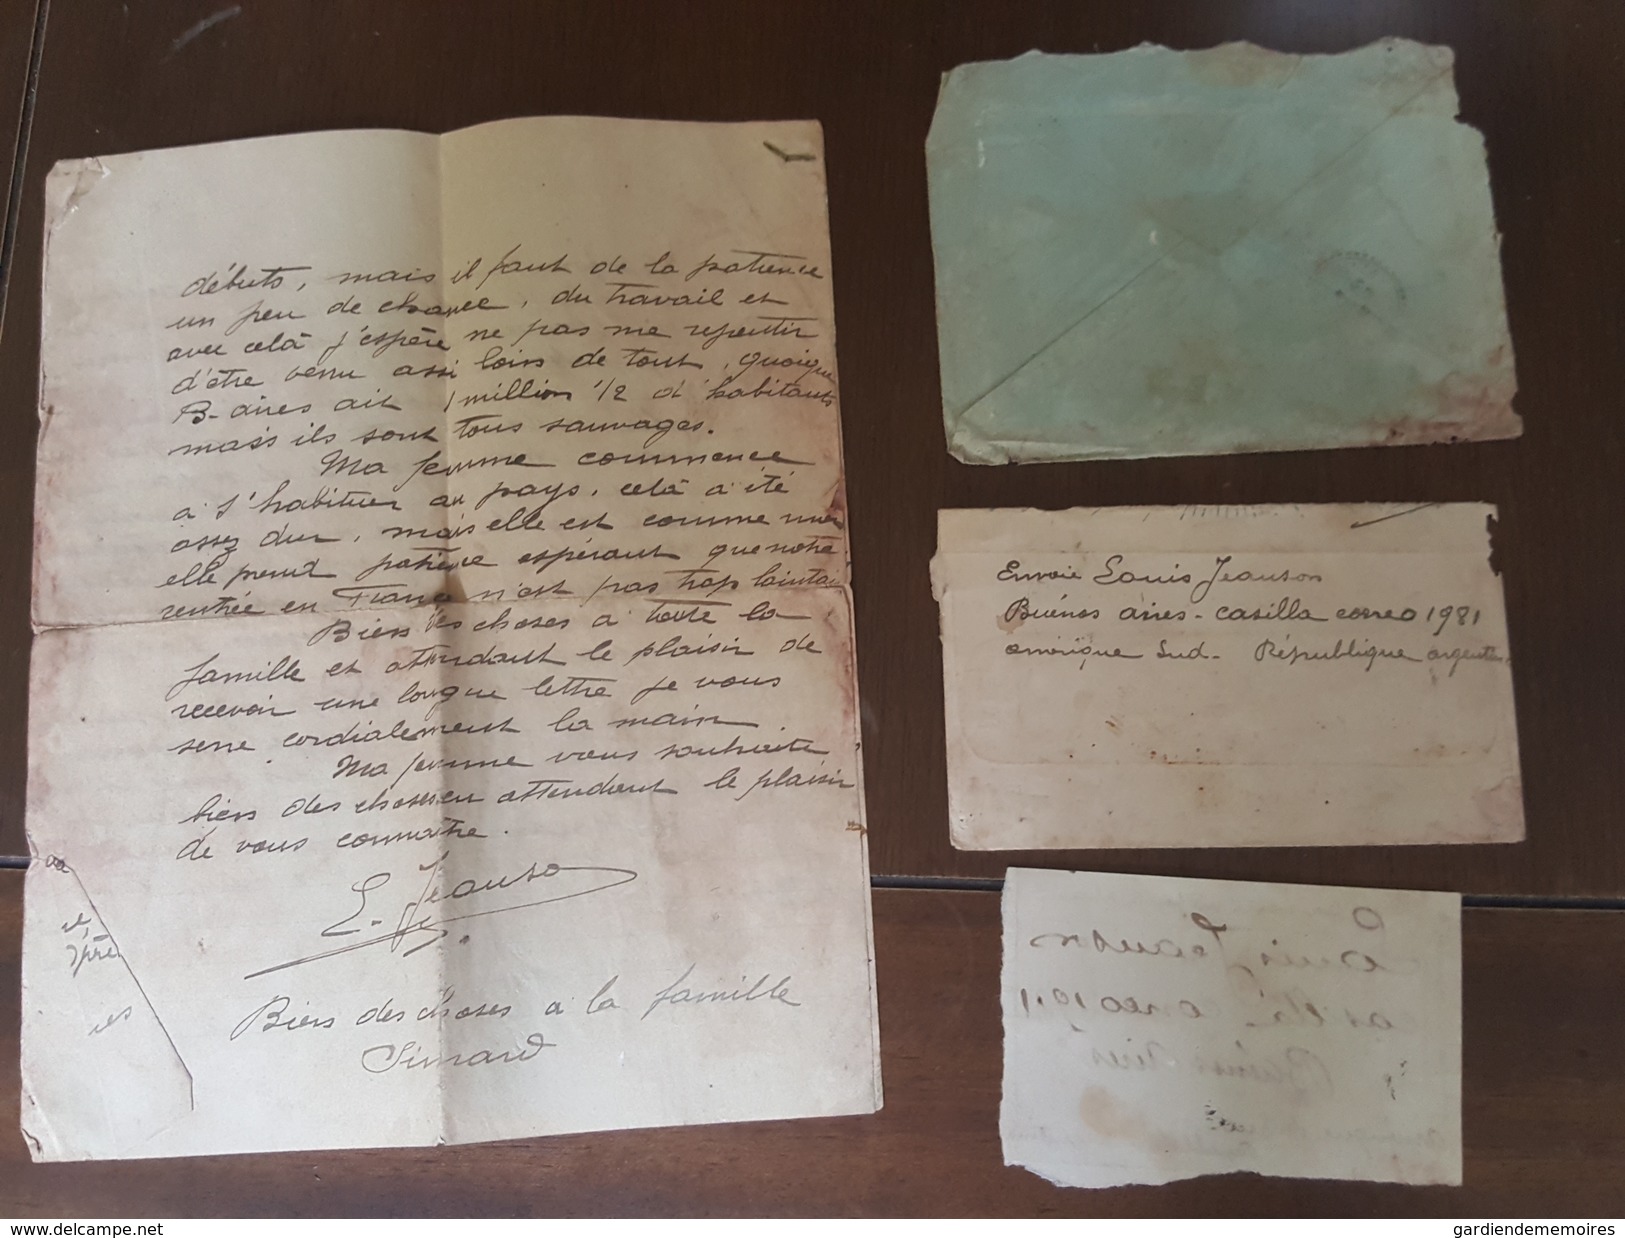 débuts, mais il faut de la patience
un peu de chance, du travail et
avec celà j'espère ne pas me repentir
d'être venu assi loin de tout, quoique
B-aires ait 1 million 1/2 d'habitants
mais ils sont tous sauvages.
Ma femme commence
à s'habituer au pays, celà a été
assez dur, mais elle est comme moi
elle prend patience espérant que notre
rentrée en France n'est pas trop lointai
Bien des choses à toute la
famille et attendant le plaisir de
recevoir une longue lettre je vous
serre cordialement la main
Ma femme vous souhaite
bien des choses en attendant le plaisir
de vous connaître.
L. Jeanson
Bien des choses à la famille
Simard
Envoie Louis Jeanson
Buénos aires - casilla correo 1981
amérique Sud - République argentin
Louis Jeanson
correo
Buénos Aires
www.delcampe.net
gardiendememoires